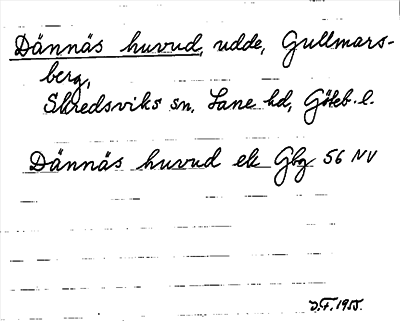 Dännäs huvud, udde, Gullmars-
berg,
Skredsviks sn, Lane hd, Göteb. l.
Dännäs huvud ek Gbg 56 NV
J.F. 1955.